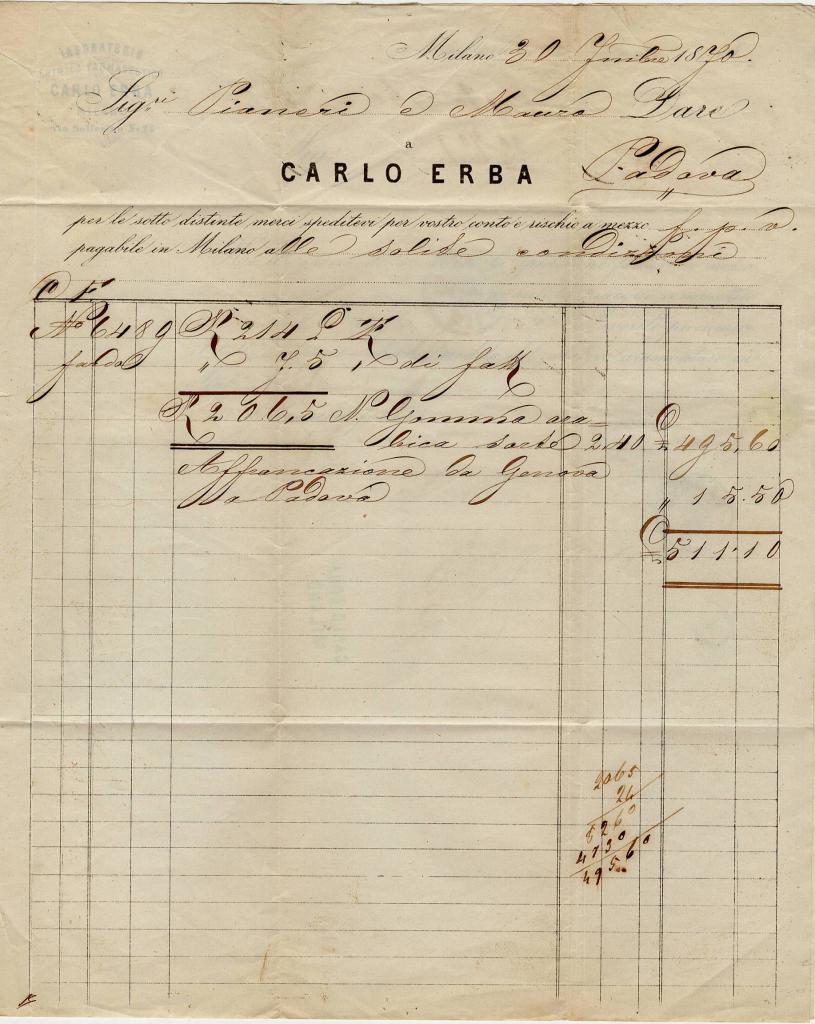 LABORATORIO
CHIMICO FARMACEUTICO
CARLO ERBA
Milano 30 7mbre 1870.
Sigri Pianeri e Mauro Dare
a
CARLO ERBA Padova
per le sotto distinte merci speditevi per vostro conto e rischio a mezzo f. p. v.
pagabile in Milano alle solite condizioni
C F
No 6489 K 214 P K
fardo " 7.5 " di fatt
K 206,5 N. Gomma ara-
bica sorte 2.40 £ 495,60
Affrancazione da Genova
a Padova " 15.50
£ 511.10
2065
24
8260
4130
49560